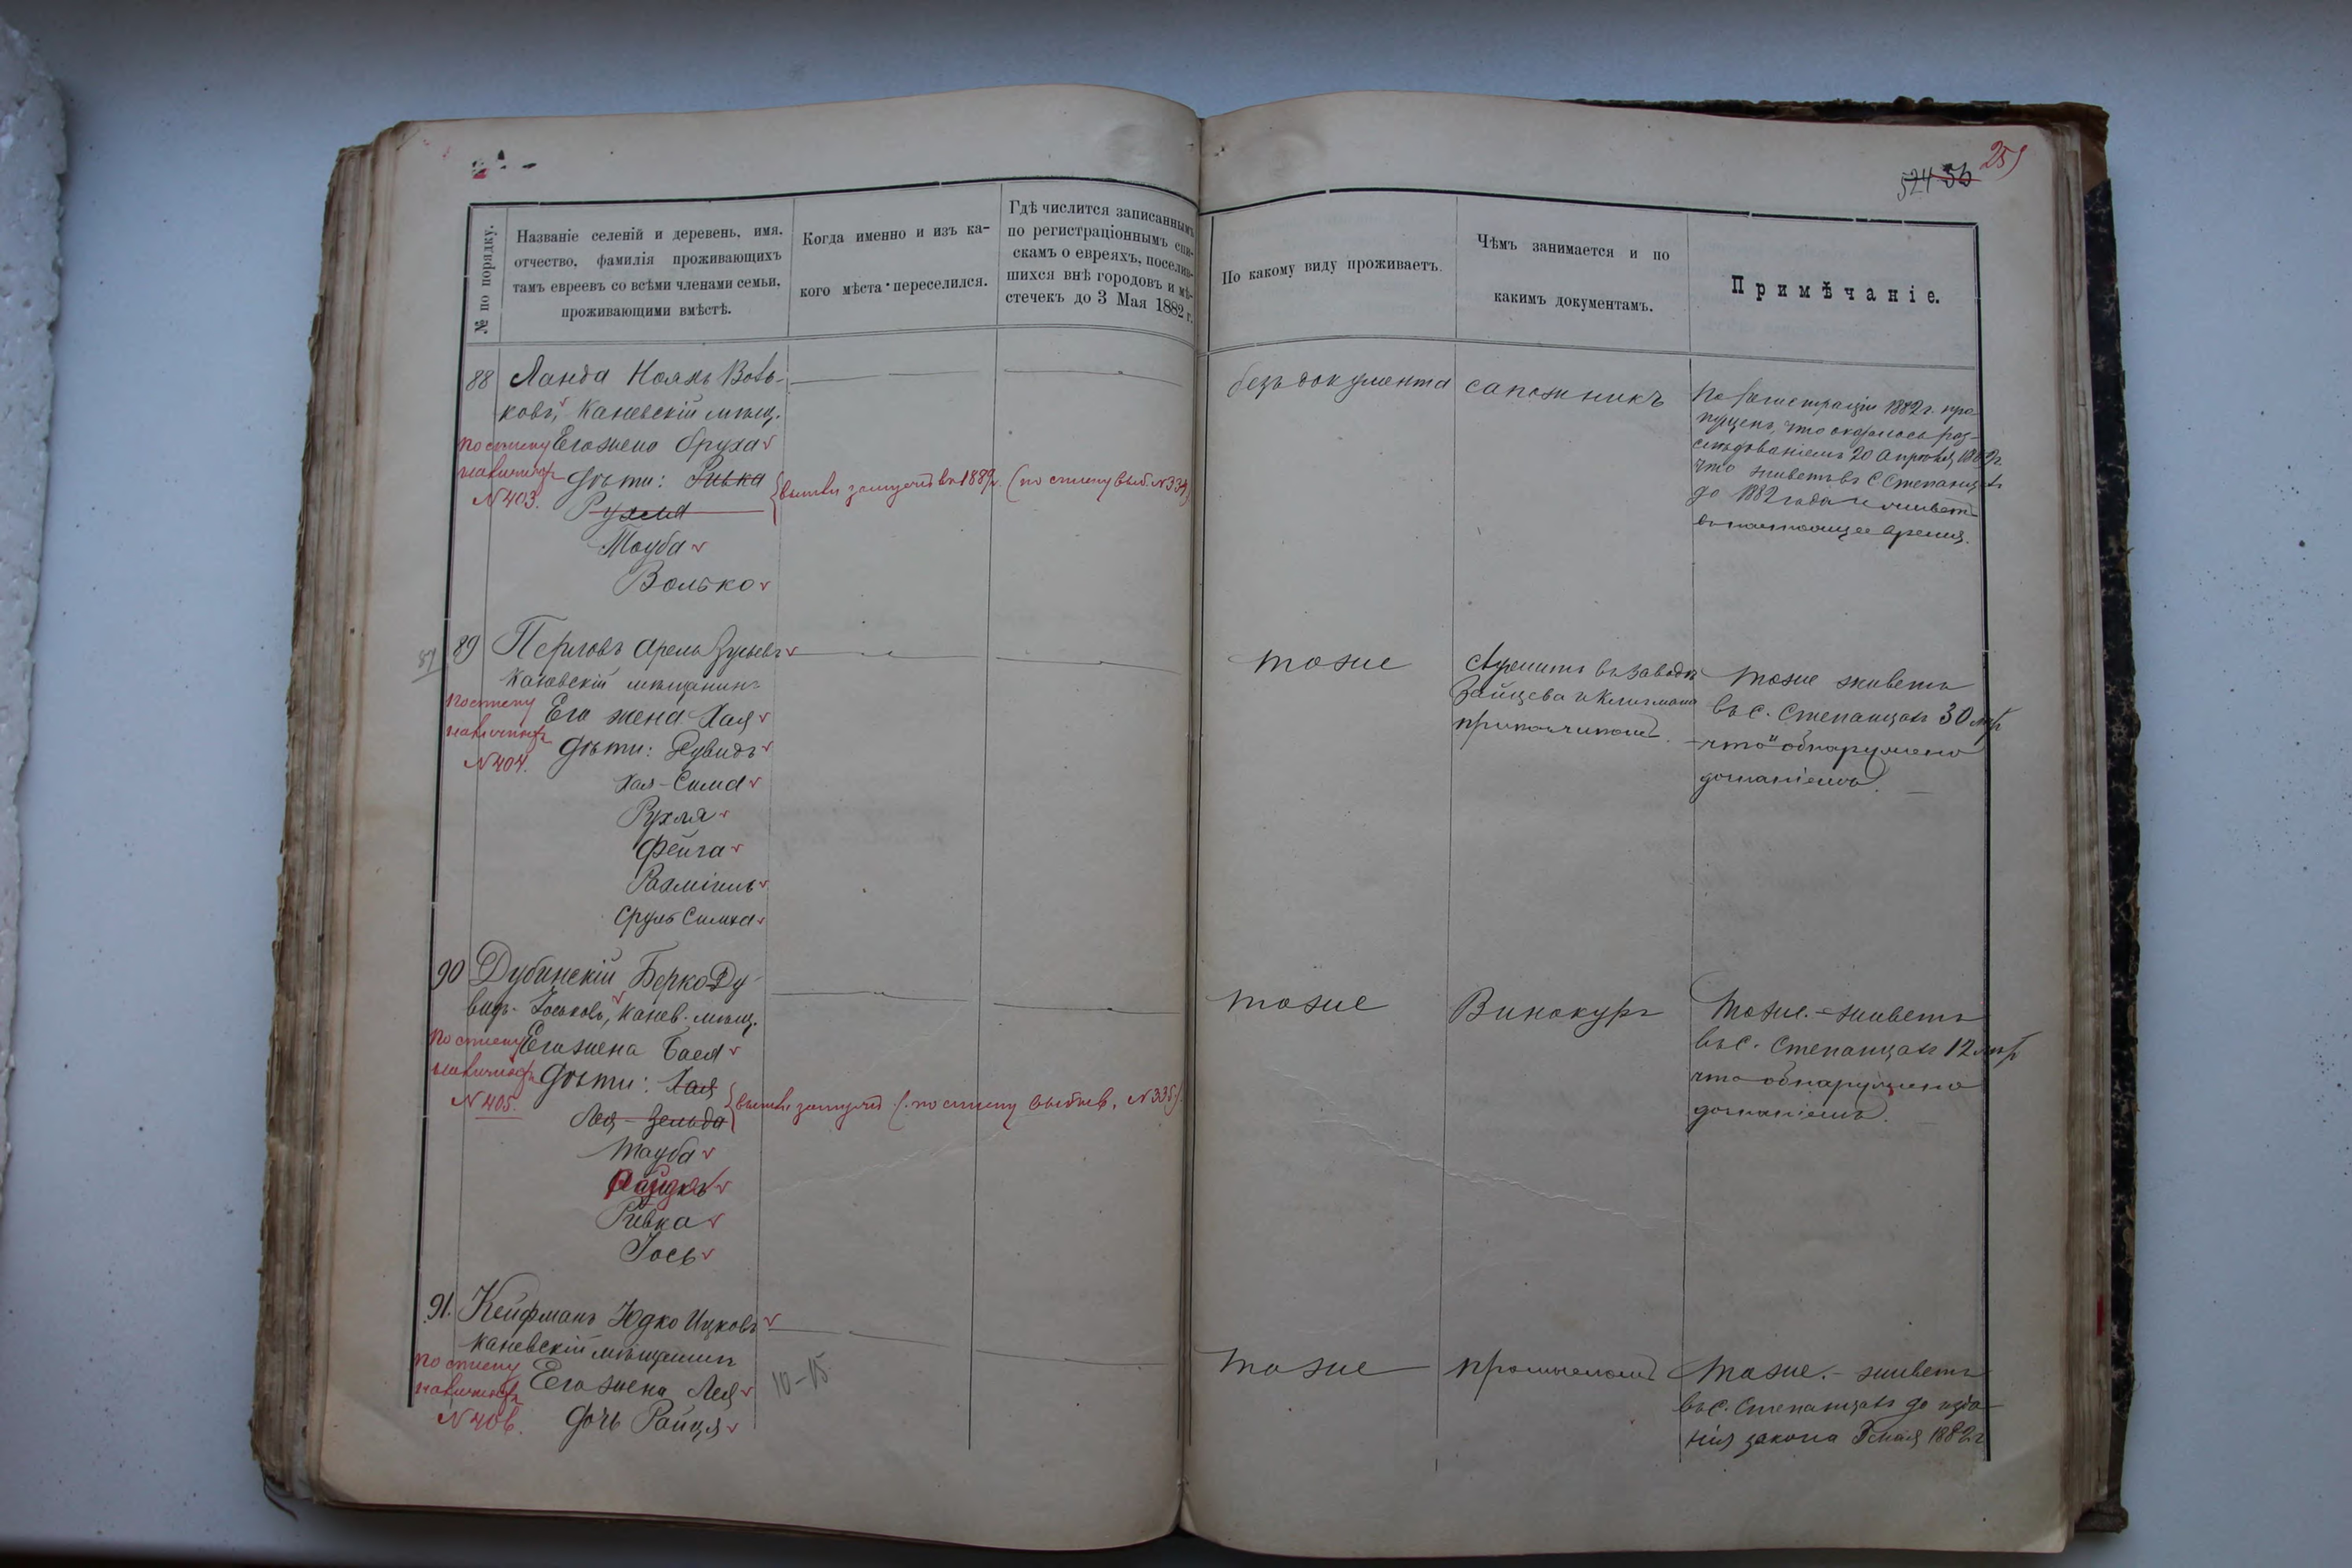 251
524 56
№ по порядку.
Названіе селеній и деревень, имя,
отчество, фамилія проживающихъ
тамъ евреевъ со всѣми членами семьи,
проживающими вмѣстѣ.
Когда именно и изъ ка-
кого мѣста переселился.
Гдѣ числится записаннымъ
по регистраціоннымъ спи-
скамъ о евреяхъ, поселив-
шихся внѣ городовъ и мѣ-
стечекъ до 3 Мая 1882 г.
По какому виду проживаетъ.
Чѣмъ занимается и по
какимъ документамъ.
Примѣчаніе.
88 Ланда Ноахъ Вовь-
ковъ, Каневскій мѣщ.
Его жена Бруха
Дѣти: Ривка
Рухля
Тауба
Волько
по списку
наличныхъ
N 403.
(по списку выб. N 334)
безъ документа
сапожникъ
По регистраціи 1882 г. про
пущенъ, что оказалось раз-
слѣдованіемъ 20 Апрѣля
что живетъ въ С Степанцахъ
до 1882 года и живетъ
въ настоящее время.
89 Перловъ Арель
Каневскій мѣщанинъ
Его жена Хая
Дѣти: Дувидъ
Хая-Сима
Рухля
Фейга
Сруль Симха
по списку
наличныхъ
N 404.
тоже
Служитъ въ заводѣ
Зайцева и
прикащикомъ.
тоже живетъ
въ с. Степанцахъ 30 лѣтъ
что обнаружено
дознаніемъ.
90 Дубинскій Берко Ду-
видъ-Іоськовъ, Канев. мѣщ.
Его жена Бася
Дѣти: Хая
Лея-Зельда
Тауба
Ривка
Іось
по списку
наличныхъ
N 405.
(по списку выбыв. N 335)
тоже
Винокуръ
Тоже.-живетъ
въ с. Степанцахъ 12 лѣтъ
что обнаружено
дознаніемъ.
91. Кейфманъ Юдко Ицковъ
Каневскій мѣщанинъ
Его жена Лея
Дочь Райця
по списку
наличныхъ
N 406.
10-15
тоже
Тоже.-живетъ
въ с. Степанцахъ до изда-
нія закона 3 мая 1882 г